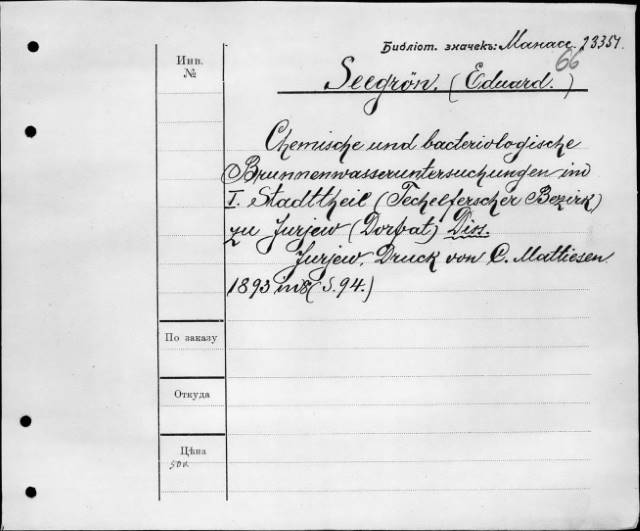 Библіот. значекъ: Манасс. 23357.
66
Инв.
№
Seegrön. (Eduard.)
Chemische und bacteriologische
Brunnenwasseruntersuchungen im
I. Stadttheil (Techelferscher Bezirk)
zu Jurjew (Dorpat) Diss.
Jurjew, Druck von C. Mattiesen
1893 in 8 (S. 94.)
По заказу
Откуда
Цѣна
50к.